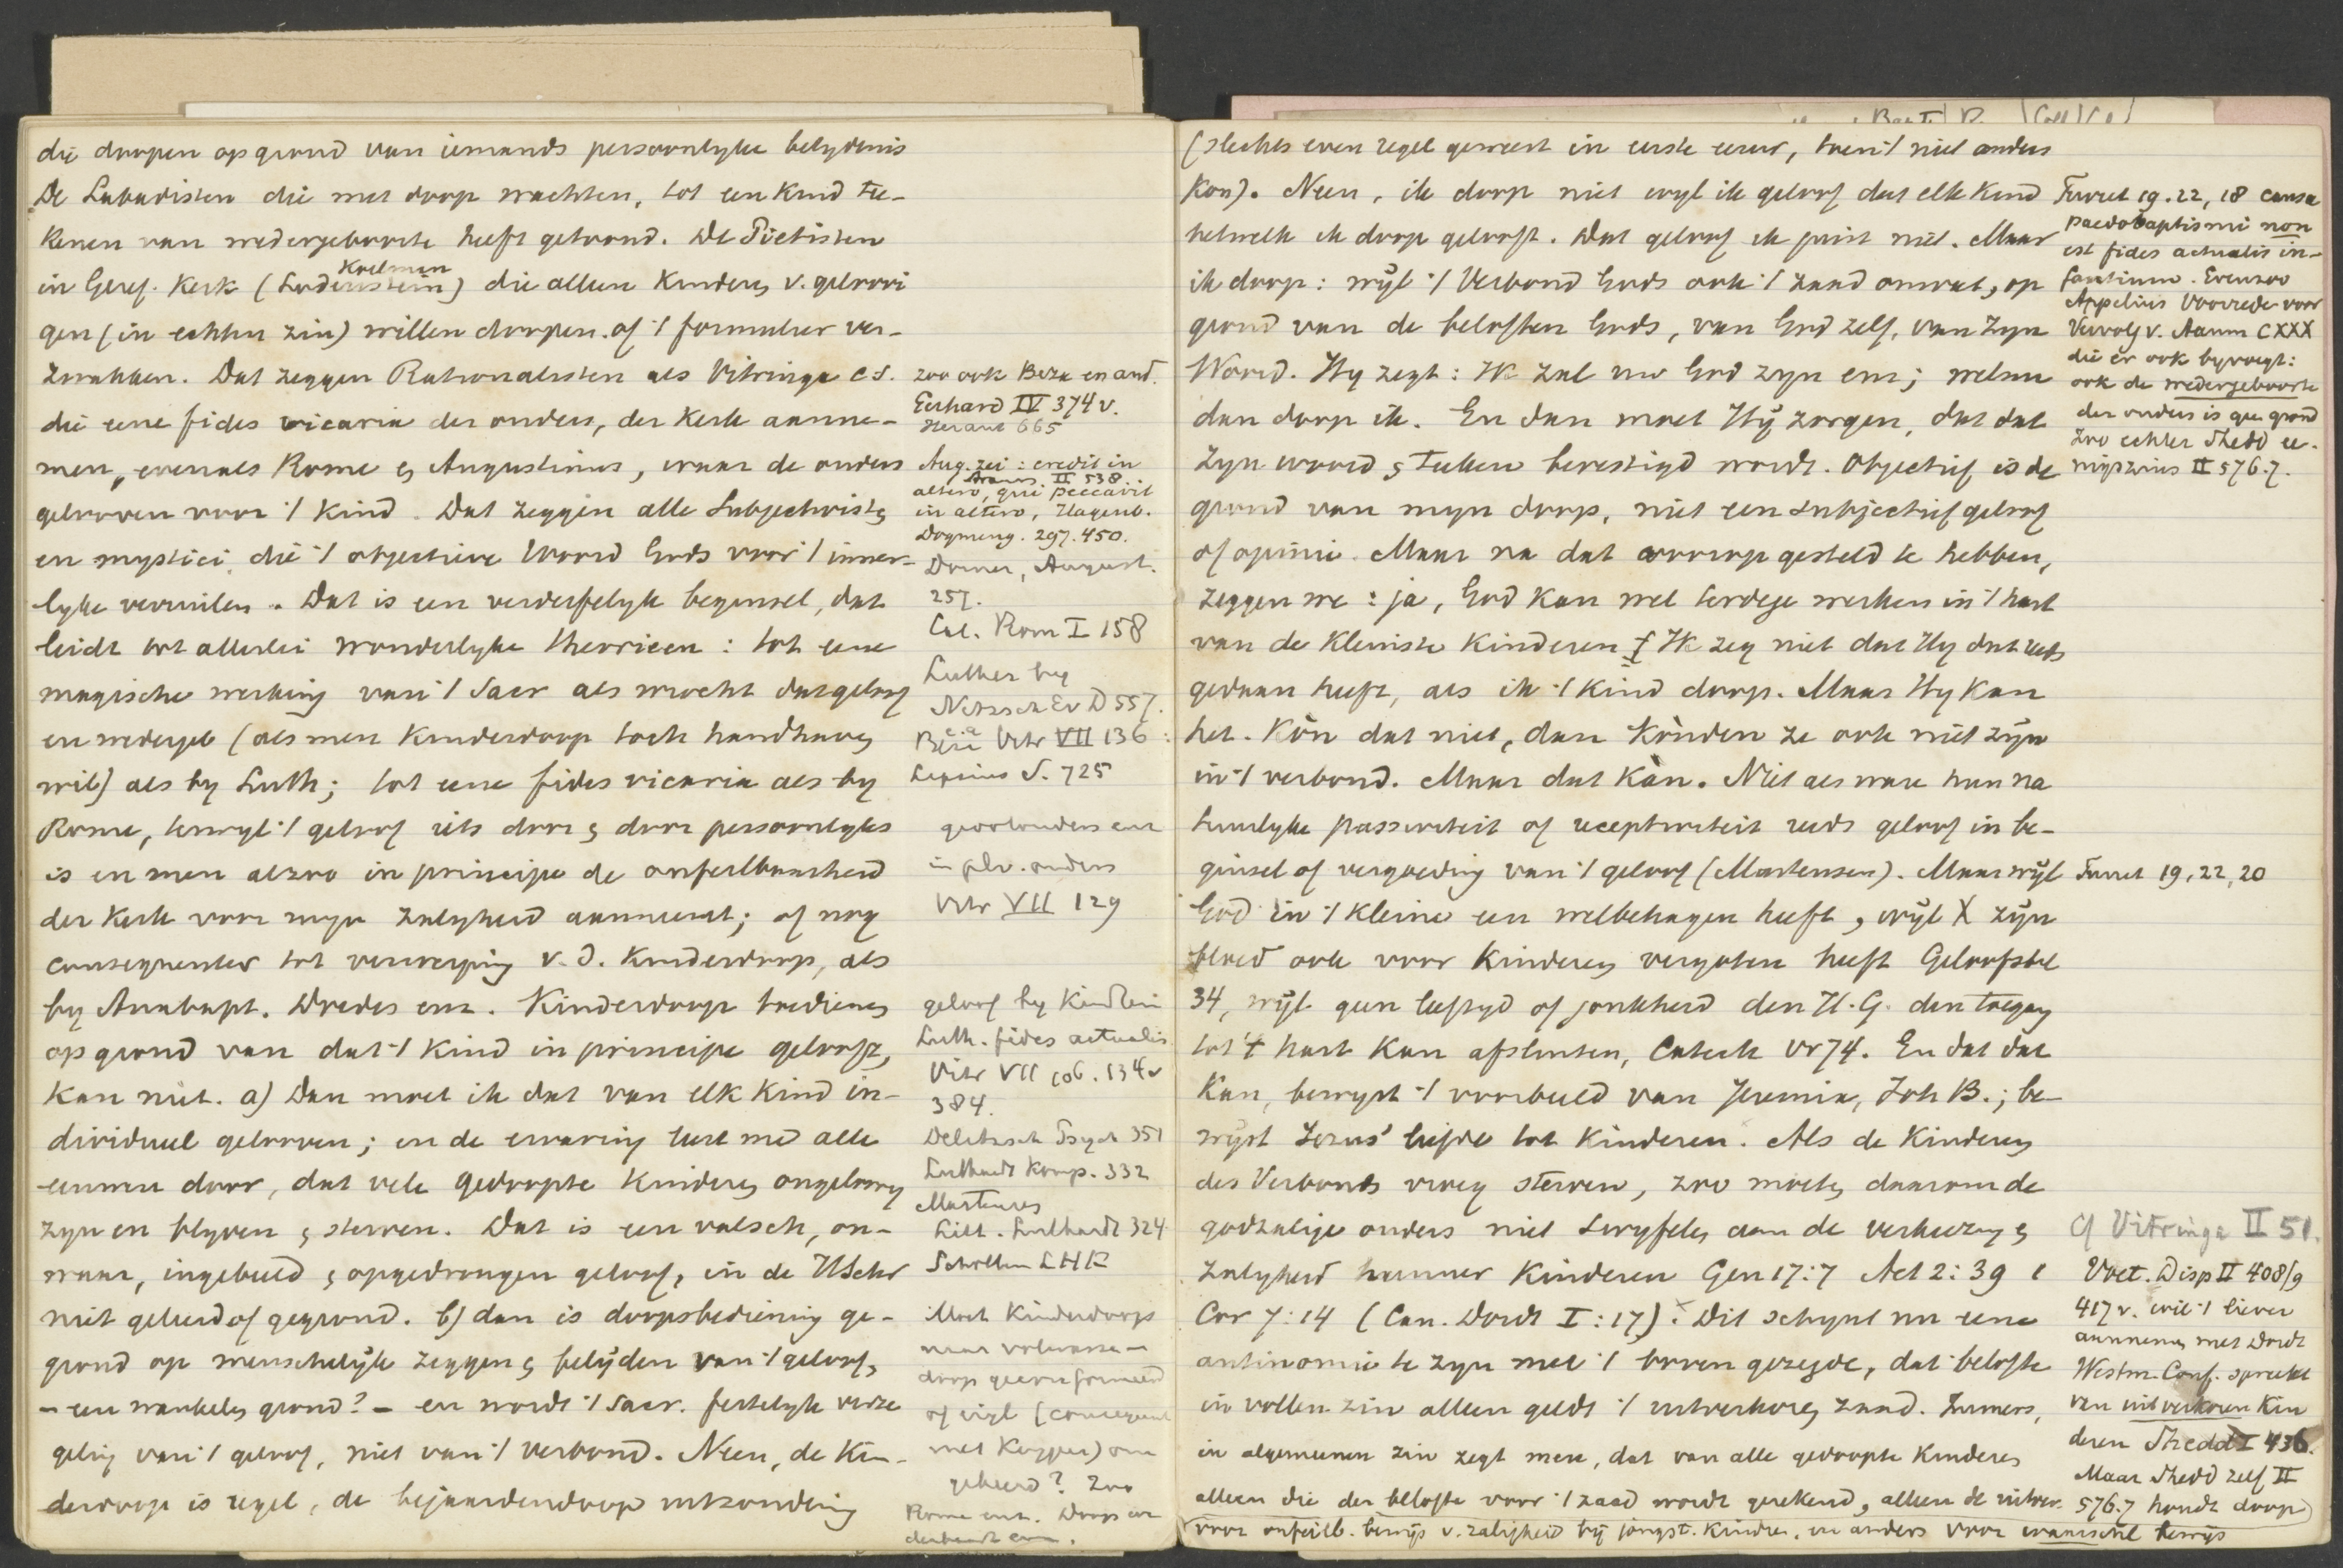 die doopen op grond van iemands persoonlyke belydenis
De Labadisten die met doop wachtten, tot een kind tee-
kenen van wedergeboorte heeft getoond. De Pietisten
in Geref. Kerk (Lodenstein) Koelman die alleen kinderen v. geloovi
gen (in echten zin) willen doopen. of 't formulier ver-
zwakken. Dat zeggen Rationalisten als Vitringa c.s.
die eene fides vicaria der ouders, der Kerk aanne-
men, evenals Rome en Augustinus, waar de ouders
gelooven voor 't kind. Dat zeggen alle Subjectivisten
en mystici, die 't objectieve Woord Gods voor 't inner-
lyke verruilen. Dat is een verderfelyk beginsel, dat
leidt tot allerlei wonderlyke theorieen: tot eene
magische werking van 't Sacr als wrocht dat geloof
en wedergeb (als men Kinderdoop toch handhaven
wil) als by Luth; tot eene fides vicaria als by
Rome, terwyl 't geloof iets door en door persoonlyks
is en men alzoo in principe de onfeilbaarheid
der Kerk voor myn zalyheid aanneemt; of nog
consequenter tot verwerping v. d. Kinderdoop, als
by Anabapt. Dredes enz. Kinderdoop bedienen
op grond van dat 't kind in principe gelooft,
kan niet. a) Dan moet ik dat van elk kind in-
dividueel gelooven; en de ervaring leert me alle
eeuwen door, dat vele gedoopte kinderen ongeloovig
zyn en blyven en sterven. Dat is een valsch, on-
waar, ingebeeld en opgedrongen geloof, in de HSchr
niet geleerd of gegrond. b) dan is doopsbediening ge-
grond op menschelyk zeggen en belyden van 't geloof,
- een wankelen grond? - en wordt 't Sacr. feitelyk verze
geling van 't geloof, niet van 't verbond. Neen, de Kin-
derdoop is regel, de bejaardendoop uitzondering
zoo ook Beza en and.
Gerhard IV 374 v.
Heraut 665
Aug. zei: credit in
altero, qui peccavit
in altero, Hagenb.
Dogmeng. 297. 450.
Dorner, August.
257.
Cat. Rom I 158
Luther by
Nitzsch Ev D 557.
Vitr VII 136
Lipsius S. 725
in plv. ouders
Vitr VII 129
geloof by Kindlein
Luth. fides actualis
Vitr VII 106. 134 v
384.
Delitzsch Psych 351
Luthardt Komp. 332
Martensen
Luthardt 324
Scholten LHK
Moet Kinderdoop
naar volwassen-
doop geconformeerd
of vigl (consequent
met Kuyper) om
gekeerd? Zoo
Rome enz. Doop en
(slechts even regel geweest in eerste eeuw, toen 't niet anders
kon). Neen, ik doop niet wyl ik geloof dat elk kind
hetwelk ik doop gelooft. Dat geloof ik juist niet. Maar
ik doop: wyl 't Verbond Gods ook 't zaad omvat, op
grond van de beloften Gods, van God zelf, van Zyn
Woord. Hy zegt: Ik zal uw God zyn enz; welnu
dan doop ik. En dan moet Hy zorgen, dat dat
Zyn woord en teeken bevestigd wordt. Objectief is de
grond van myn doop, niet een subjectief geloof
of opinie. Maar na dat voorop gesteld te hebben,
zeggen we: ja, God kan wel terdege werken in 't hart
van de kleinste kinderen. Ik zeg niet dat Hy dat reeds
gedaan heeft, als ik 't kind doop. Maar Hy kan
het. Kòn dat niet, dan kònden ze ook niet zyn
in 't verbond. Maar dat kàn. Niet als ware hun na
tuurlyke passiviteit of receptiviteit reeds geloof in be-
ginsel of vergoeding van 't geloof (Martensen). Maar wyl
God in 't kleine een welbehagen heeft, wyl X zyn
bloed ook voor kinderen vergoten heeft Geloofsbel
34, wyl geen leeftyd of jonkheid den H. G. den toegang
tot 't hart kan afsluiten, Catech Vr 74. En dat dat
kan, bewyst 't voorbeeld van Jeremia, Joh B.; be-
wyst Jezus' liefde tot kinderen. Als de kinderen
des Verbonds vroeg sterven, zoo moeten daarom de
godzalige ouders niet twyfelen aan de verkiezing en
zalyheid hunner kinderen Gen 17:7 Act 2:39 1
Cor 7:14 (Can. Dordt I:17). Dit schynt nu eene
antinomie te zyn met 't boven gezegde, dat belofte
in vollen zin alleen geldt 't uitverkoren zaad. Immers,
in algemeenen zin zegt men, dat van alle gedoopte kinderen
alleen die der belofte voor 't zaad wordt gerekend, alleen de uitver.
Turret 19. 22, 18 causa
paedobaptismi non
est fides actualis in-
fantium. Evenzoo
Appelius Voorrede voor
Vervolg v. Aanm CXXX
die er ook byvoegt:
ook de wedergeboorte
der ouders is geen grond
zoo echter Shedd
II 576.7.
Turret 19, 22, 20
Cf Vitringa II 51.
Voet. Disp II 408/9
417 v. wil 't liever
aannemen met Dordt
Westm. Conf. spreekt
van uitverkoren kin
deren Shedd I 436.
Maar Shedd zelf II
576.7 houdt doop
voor onfeilb. bewijs v. zaligheid bij jongst. kindren, en anders voor waarschl bewijs